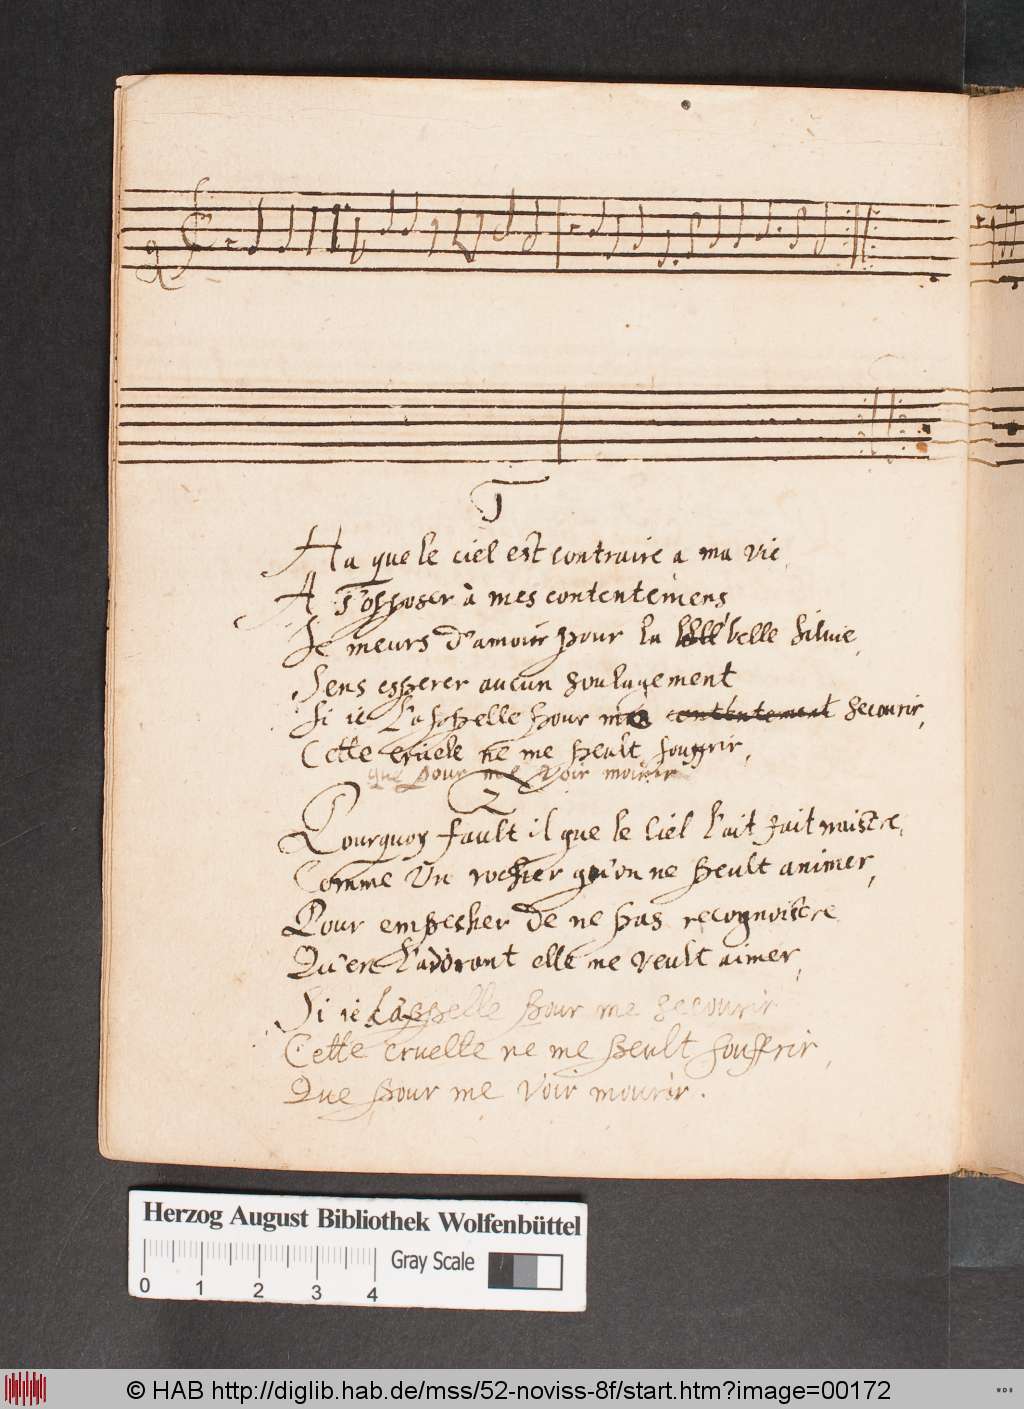 1
Ha que le ciel est contraire a ma vie,
A s'opposer à mes contentemens
Je meurs d'amour pour la belle Silvie,
Sens esperer aucun soulagement
Si ie L'appelle pour me contentement secourir,
Cette cruele ne me peult souffrir,
que pour me voir mourir
2
Pourquoy fault il que le Ciel l'ait fait naistre,
Comme Un rocher qu'on ne peult animer,
Pour empescher de ne pas recognoistre
Qu'en l'adorant elle ne veult aimer,
Si ie L'appelle pour me secourir
Cette cruelle ne me peult souffrir,
Que pour me voir mourir.
Herzog August Bibliothek Wolfenbüttel
Gray Scale
0 1 2 3 4
© HAB http://diglib.hab.de/mss/52-noviss-8f/start.htm?image=00172